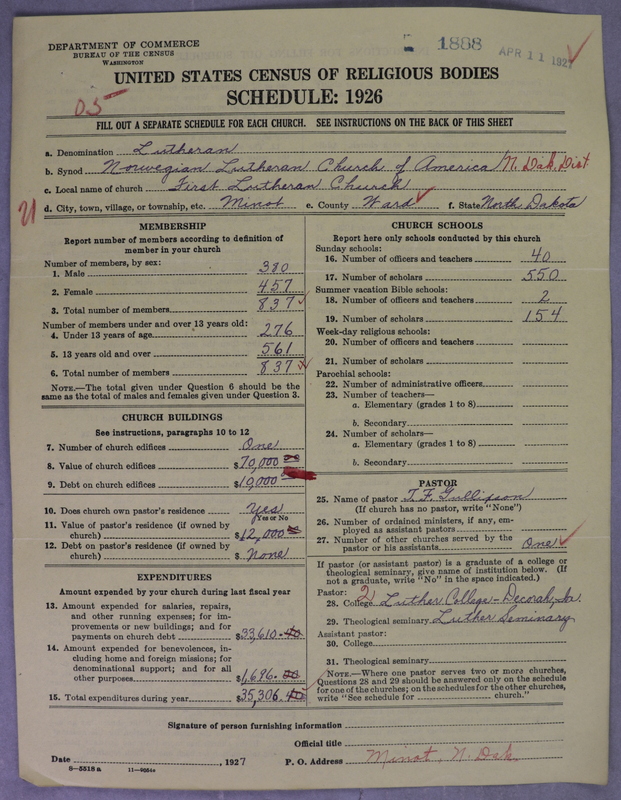 DEPARTMENT OF COMMERCE
BUREAU OF THE CENSUS
WASHINGTON
1888
APR 11 1927
UNITED STATES CENSUS OF RELIGIOUS BODIES
SCHEDULE: 1926
05
FILL OUT A SEPARATE SCHEDULE FOR EACH CHURCH. SEE INSTRUCTIONS ON THE BACK OF THIS SHEET
a. Denomination Lutheran
b. Synod Norwegian Lutheran Church of America / N. Dak. Dist
c. Local name of church First Lutheran Church
d. City, town, village, or township, etc. Minot e. County Ward f. State North Dakota
MEMBERSHIP
Report number of members according to definition of
member in your church
Number of members, by sex:
1. Male 380
2. Female 457
3. Total number of members 837
Number of members under and over 13 years old:
4. Under 13 years of age 276
5. 13 years old and over 561
6. Total number of members 837
NOTE.—The total given under Question 6 should be the
same as the total of males and females given under Question 3.
CHURCH BUILDINGS
See instructions, paragraphs 10 to 12
7. Number of church edifices One
8. Value of church edifices $70,000
9. Debt on church edifices $10,000
10. Does church own pastor's residence Yes
Yes or No
11. Value of pastor's residence (if owned by
church) $12,000
12. Debt on pastor's residence (if owned by
church) $ None
EXPENDITURES
Amount expended by your church during last fiscal year
13. Amount expended for salaries, repairs,
and other running expenses; for im-
provements or new buildings; and for
payments on church debt $33,610.40
14. Amount expended for benevolences, in-
cluding home and foreign missions; for
denominational support; and for all
other purposes $1,696.00
15. Total expenditures during year $35,306.40
CHURCH SCHOOLS
Report here only schools conducted by this church
Sunday schools:
16. Number of officers and teachers 40
17. Number of scholars 550
Summer vacation Bible schools:
18. Number of officers and teachers 2
19. Number of scholars 154
Week-day religious schools:
20. Number of officers and teachers
21. Number of scholars
Parochial schools:
22. Number of administrative officers
23. Number of teachers—
a. Elementary (grades 1 to 8)
b. Secondary
24. Number of scholars—
a. Elementary (grades 1 to 8)
b. Secondary
PASTOR
25. Name of pastor T. F. Gullixson
(If church has no pastor, write "None")
26. Number of ordained ministers, if any, em-
ployed as assistant pastors
27. Number of other churches served by the
pastor or his assistants One
If pastor (or assistant pastor) is a graduate of a college or
theological seminary, give name of institution below. (If
not a graduate, write "No" in the space indicated.)
Pastor: 2
28. College Luther College - Decorah, Ia.
29. Theological seminary Luther Seminary
Assistant pastor:
30. College
31. Theological seminary
NOTE.—Where one pastor serves two or more churches,
Questions 28 and 29 should be answered only on the schedule
for one of the churches; on the schedules for the other churches,
write "See schedule for church."
Signature of person furnishing information
Official title
Date , 1927 P. O. Address Minot, N. Dak.
8-5518 a